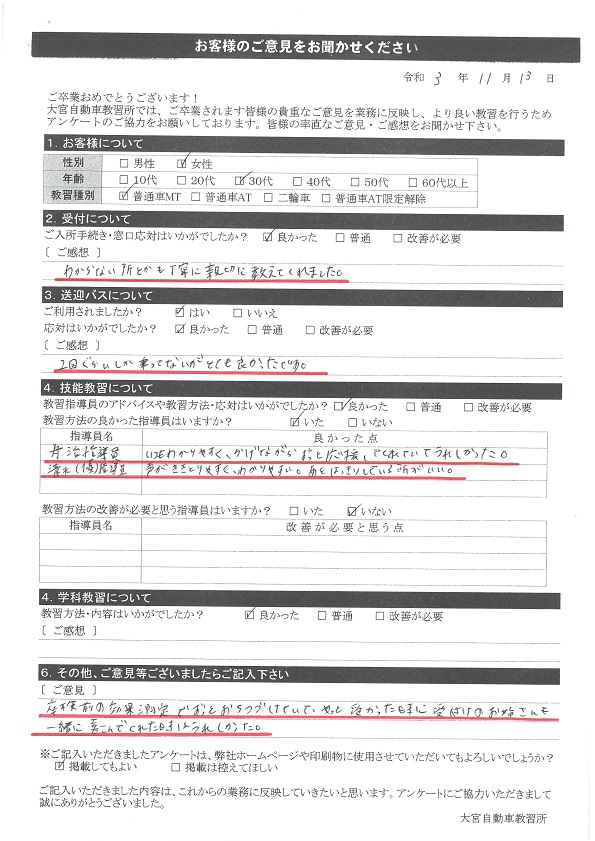 お客様のご意見をお聞かせください
令和 3 年 11 月 13 日
ご卒業おめでとうございます！
大宮自動車教習所では、ご卒業されます皆様の貴重なご意見を業務に反映し、より良い教習を行うため
アンケートのご協力をお願いしております。皆様の率直なご意見・ご感想をお聞かせ下さい。
1. お客様について
性別 □ 男性 ☑ 女性
年齢 □ 10代 □ 20代 ☑ 30代 □ 40代 □ 50代 □ 60代以上
教習種別 ☑ 普通車MT □ 普通車AT □ 二輪車 □ 普通車AT限定解除
2. 受付について
ご入所手続き・窓口応対はいかがでしたか？ ☑ 良かった □ 普通 □ 改善が必要
〔 ご感想 〕
わからない所とかも丁寧に親切に教えてくれました。
3. 送迎バスについて
ご利用されましたか？ ☑ はい □ いいえ
応対はいかがでしたか？ ☑ 良かった □ 普通 □ 改善が必要
〔 ご感想 〕
2回ぐらいしか乗ってないがとても良かったです。
4. 技能教習について
教習指導員のアドバイスや教習方法・応対はいかがでしたか？ ☑ 良かった □ 普通 □ 改善が必要
教習方法の良かった指導員はいますか？ ☑ いた □ いない
指導員名 良かった点
丹治指導員 いつもわかりやすく、かげながらずっと応援してくれていてうれしかった。
清水(優)指導員 声がききとりやすく、わかりやすい。あとはっきりしている所がいい。
教習方法の改善が必要と思う指導員はいますか？ □ いた ☑ いない
指導員名 改善が必要と思う点
4. 学科教習について
教習方法・内容はいかがでしたか？ ☑ 良かった □ 普通 □ 改善が必要
〔 ご感想 〕
6. その他、ご意見等ございましたらご記入下さい
〔 ご意見 〕
卒検前の効果測定でずっとおちつづけていて、やっと受かった時に受付けのお姉さんも
一緒に喜こんでくれた時はうれしかった。
※ご記入いただきましたアンケートは、弊社ホームページや印刷物に使用させていただいてもよろしいでしょうか？
☑ 掲載してもよい □ 掲載は控えてほしい
ご記入いただきました内容は、これからの業務に反映していきたいと思います。アンケートにご協力いただきまして
誠にありがとうございました。
大宮自動車教習所